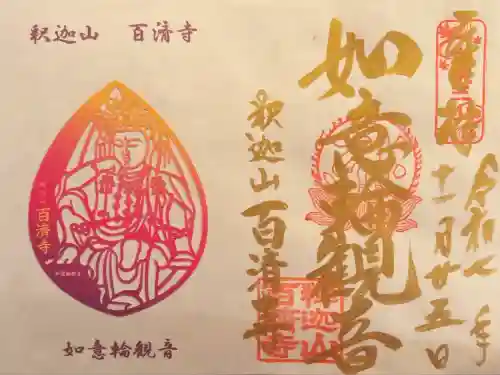 釈迦山 百済寺
百済寺
如意輪観音
令和七年
十一月廿五日
如意輪観音
釈迦山百済寺
釈迦山
百済寺